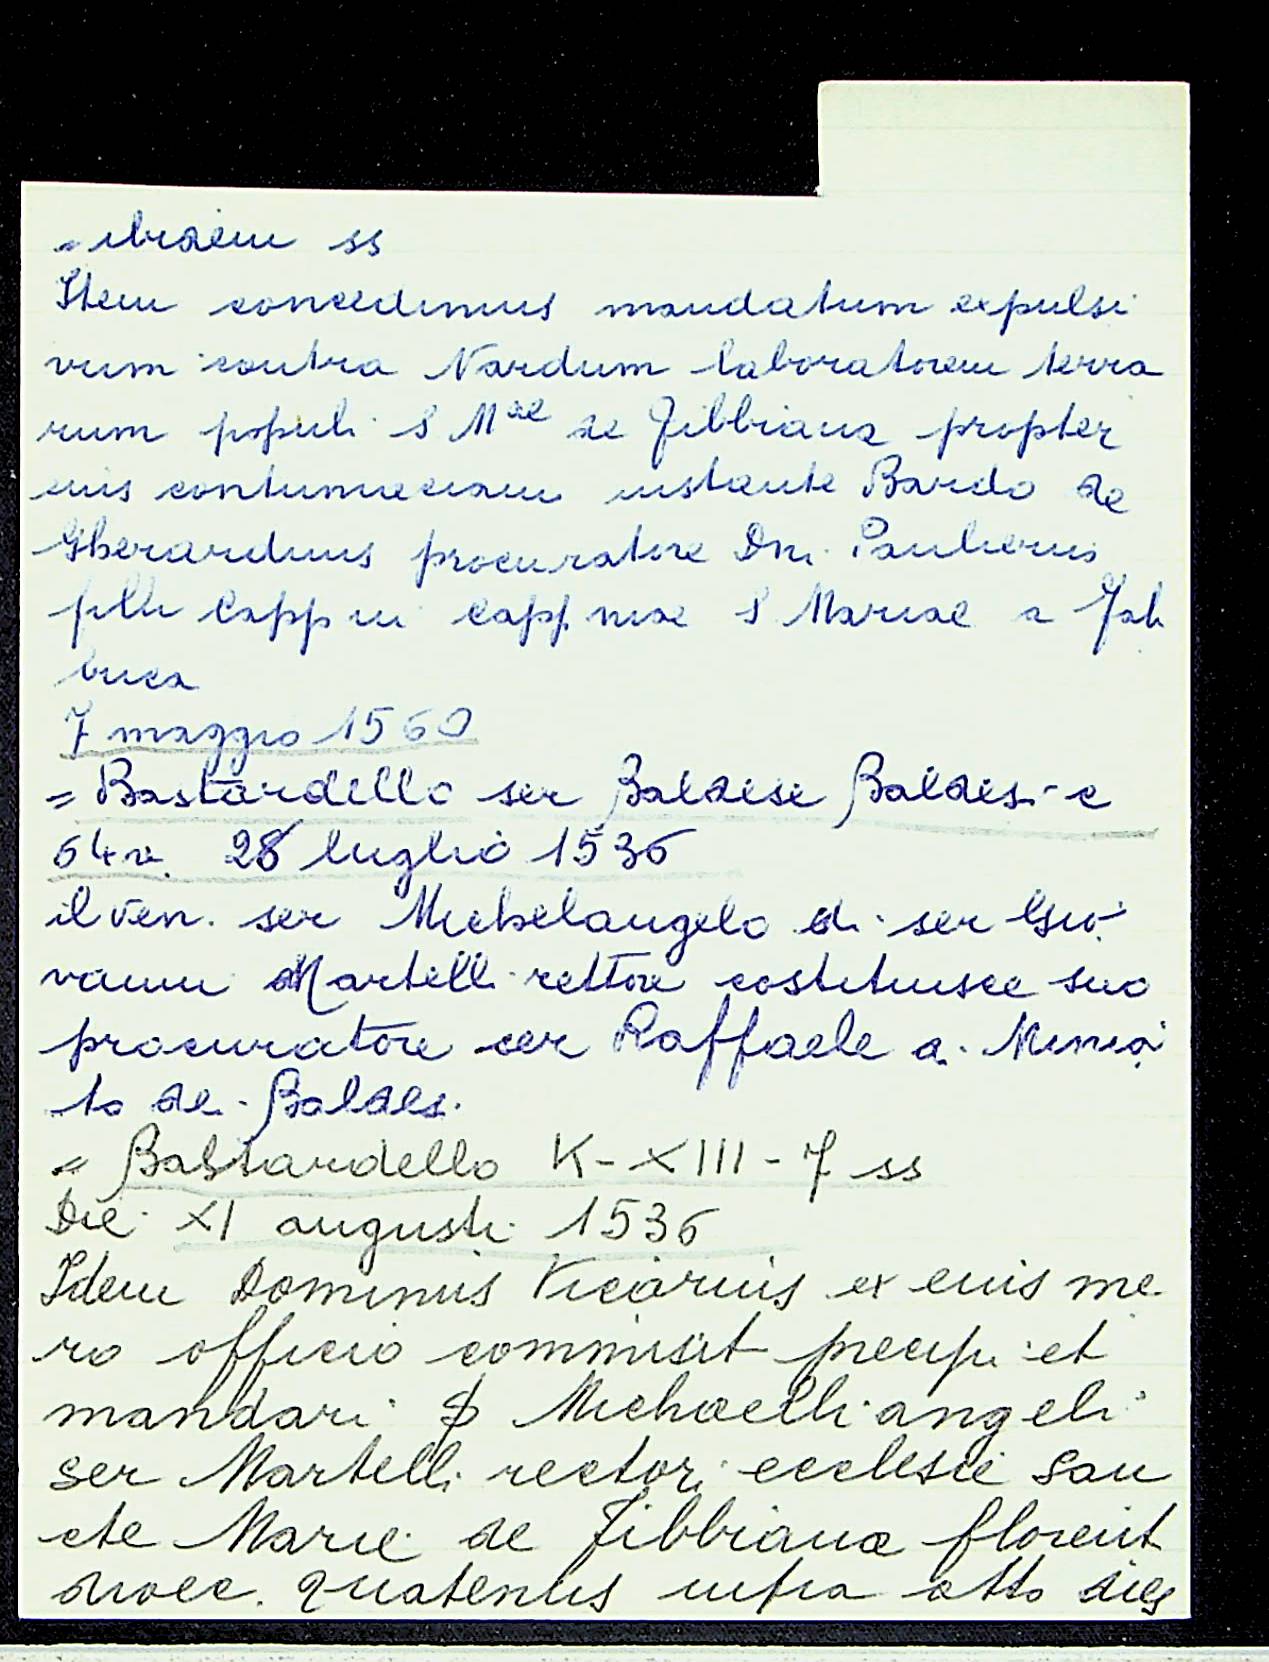 = ibidem ss
Item concedimus mandatum expulsi
vum contra Nardum laboratorem terra
rum populi S Mae de Fibbiana propter
eius contumaciam instante Bardo de
Gherardinis procuratore Dni.
filii Capponi S Mariae a Fab
brica
7 maggio 1560
= Bastardello ser Baldese Baldesi - c
64 v. 28 luglio 1536
il ven. ser Michelangelo di ser Gio
vanni Martelli rettore costituisce suo
procuratore ser Raffaele a. Minia
to de Baldes.
= Bastardello K - XIII - 7 ss
Die XI augusti 1536
Idem Dominus Vicarius ex eius me
ro officio commisit precipi et
mandari Michaelli angeli
ser Martelli rectori ecclesie San
cte Marie de Fibbiana florent
dioec. quatenus infra otto dies